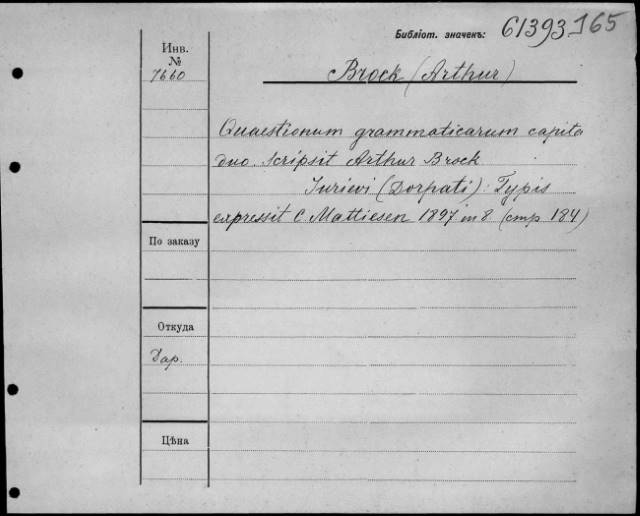 Библіот. значекъ: 61393 J65
Инв.
№
7660
Brock (Arthur)
Quaestionum grammaticarum capita
duo. scripsit Arthur Brock
Iurievi (Dorpati): Typis
expressit C. Mattiesen 1897 in 8. (стр 184)
По заказу
Откуда
Дар.
Цѣна